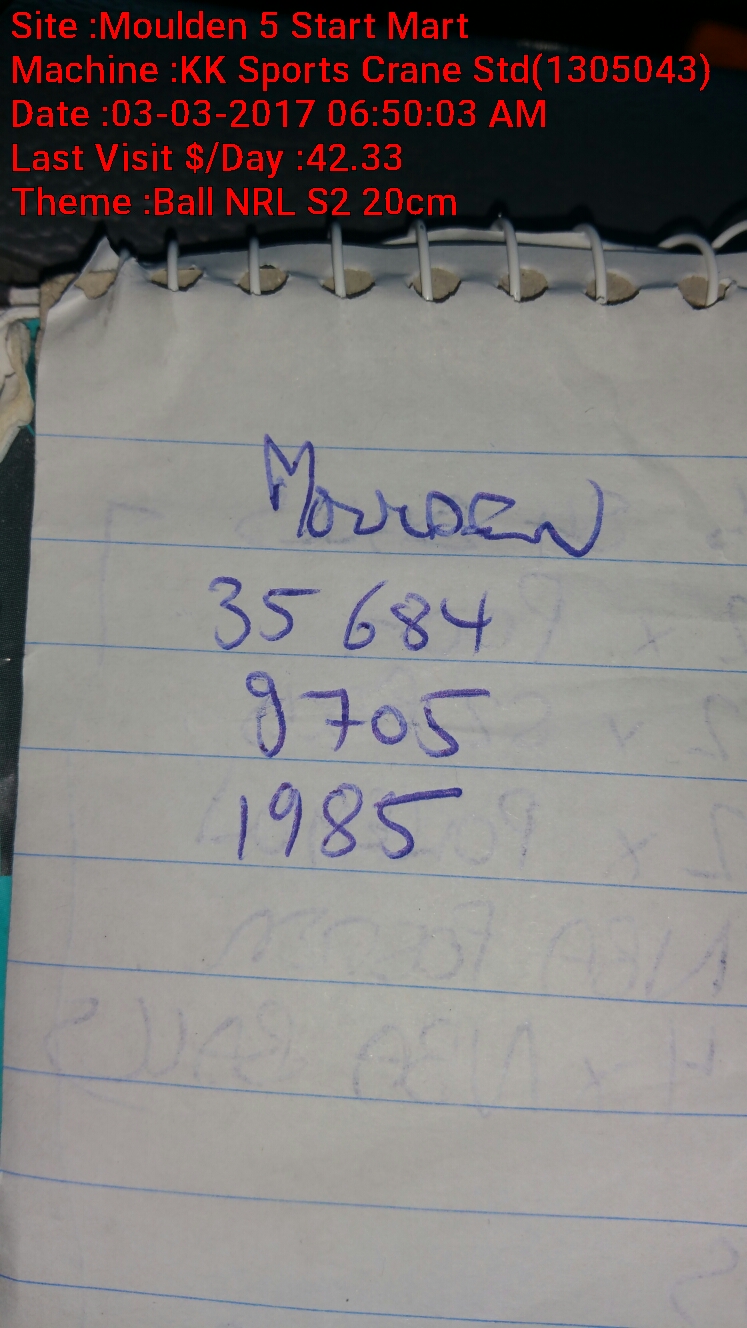 Site :Moulden 5 Start Mart
Machine :KK Sports Crane Std(1305043)
Date :03-03-2017 06:50:03 AM
Last Visit $/Day :42.33
Theme :Ball NRL S2 20cm
MOULDEN
35 684
9705
1985